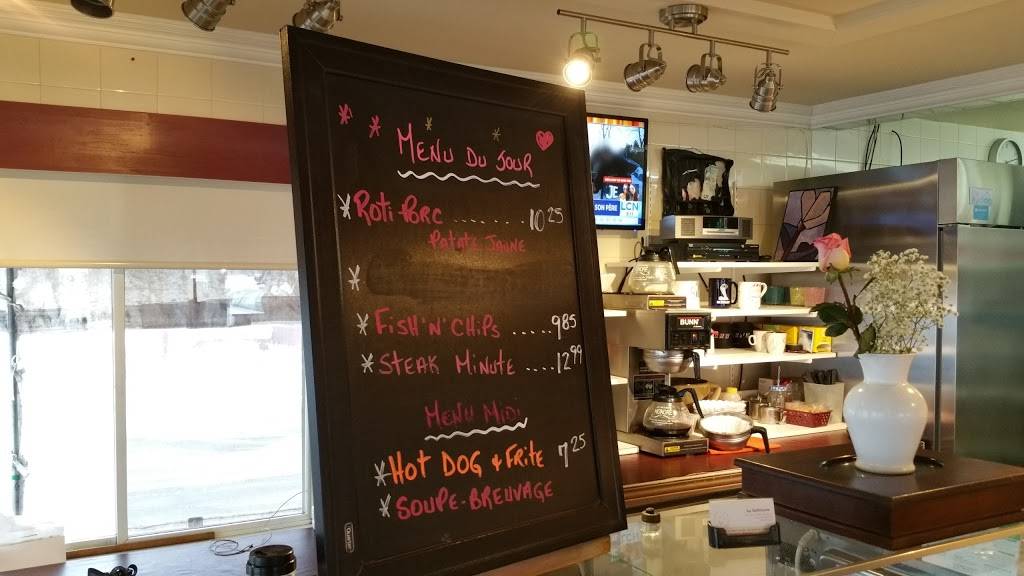 MENU DU JOUR
Roti Porc ....... 10 25
Patate Jaune
FISH'N'CHIPS ..... 9 85
STEAK MINUTE .... 12 99
MENU MIDI
HOT DOG + FRITE 7 25
SOUPE-BREUVAGE
JE
SON PÈRE
LCN
BUNN